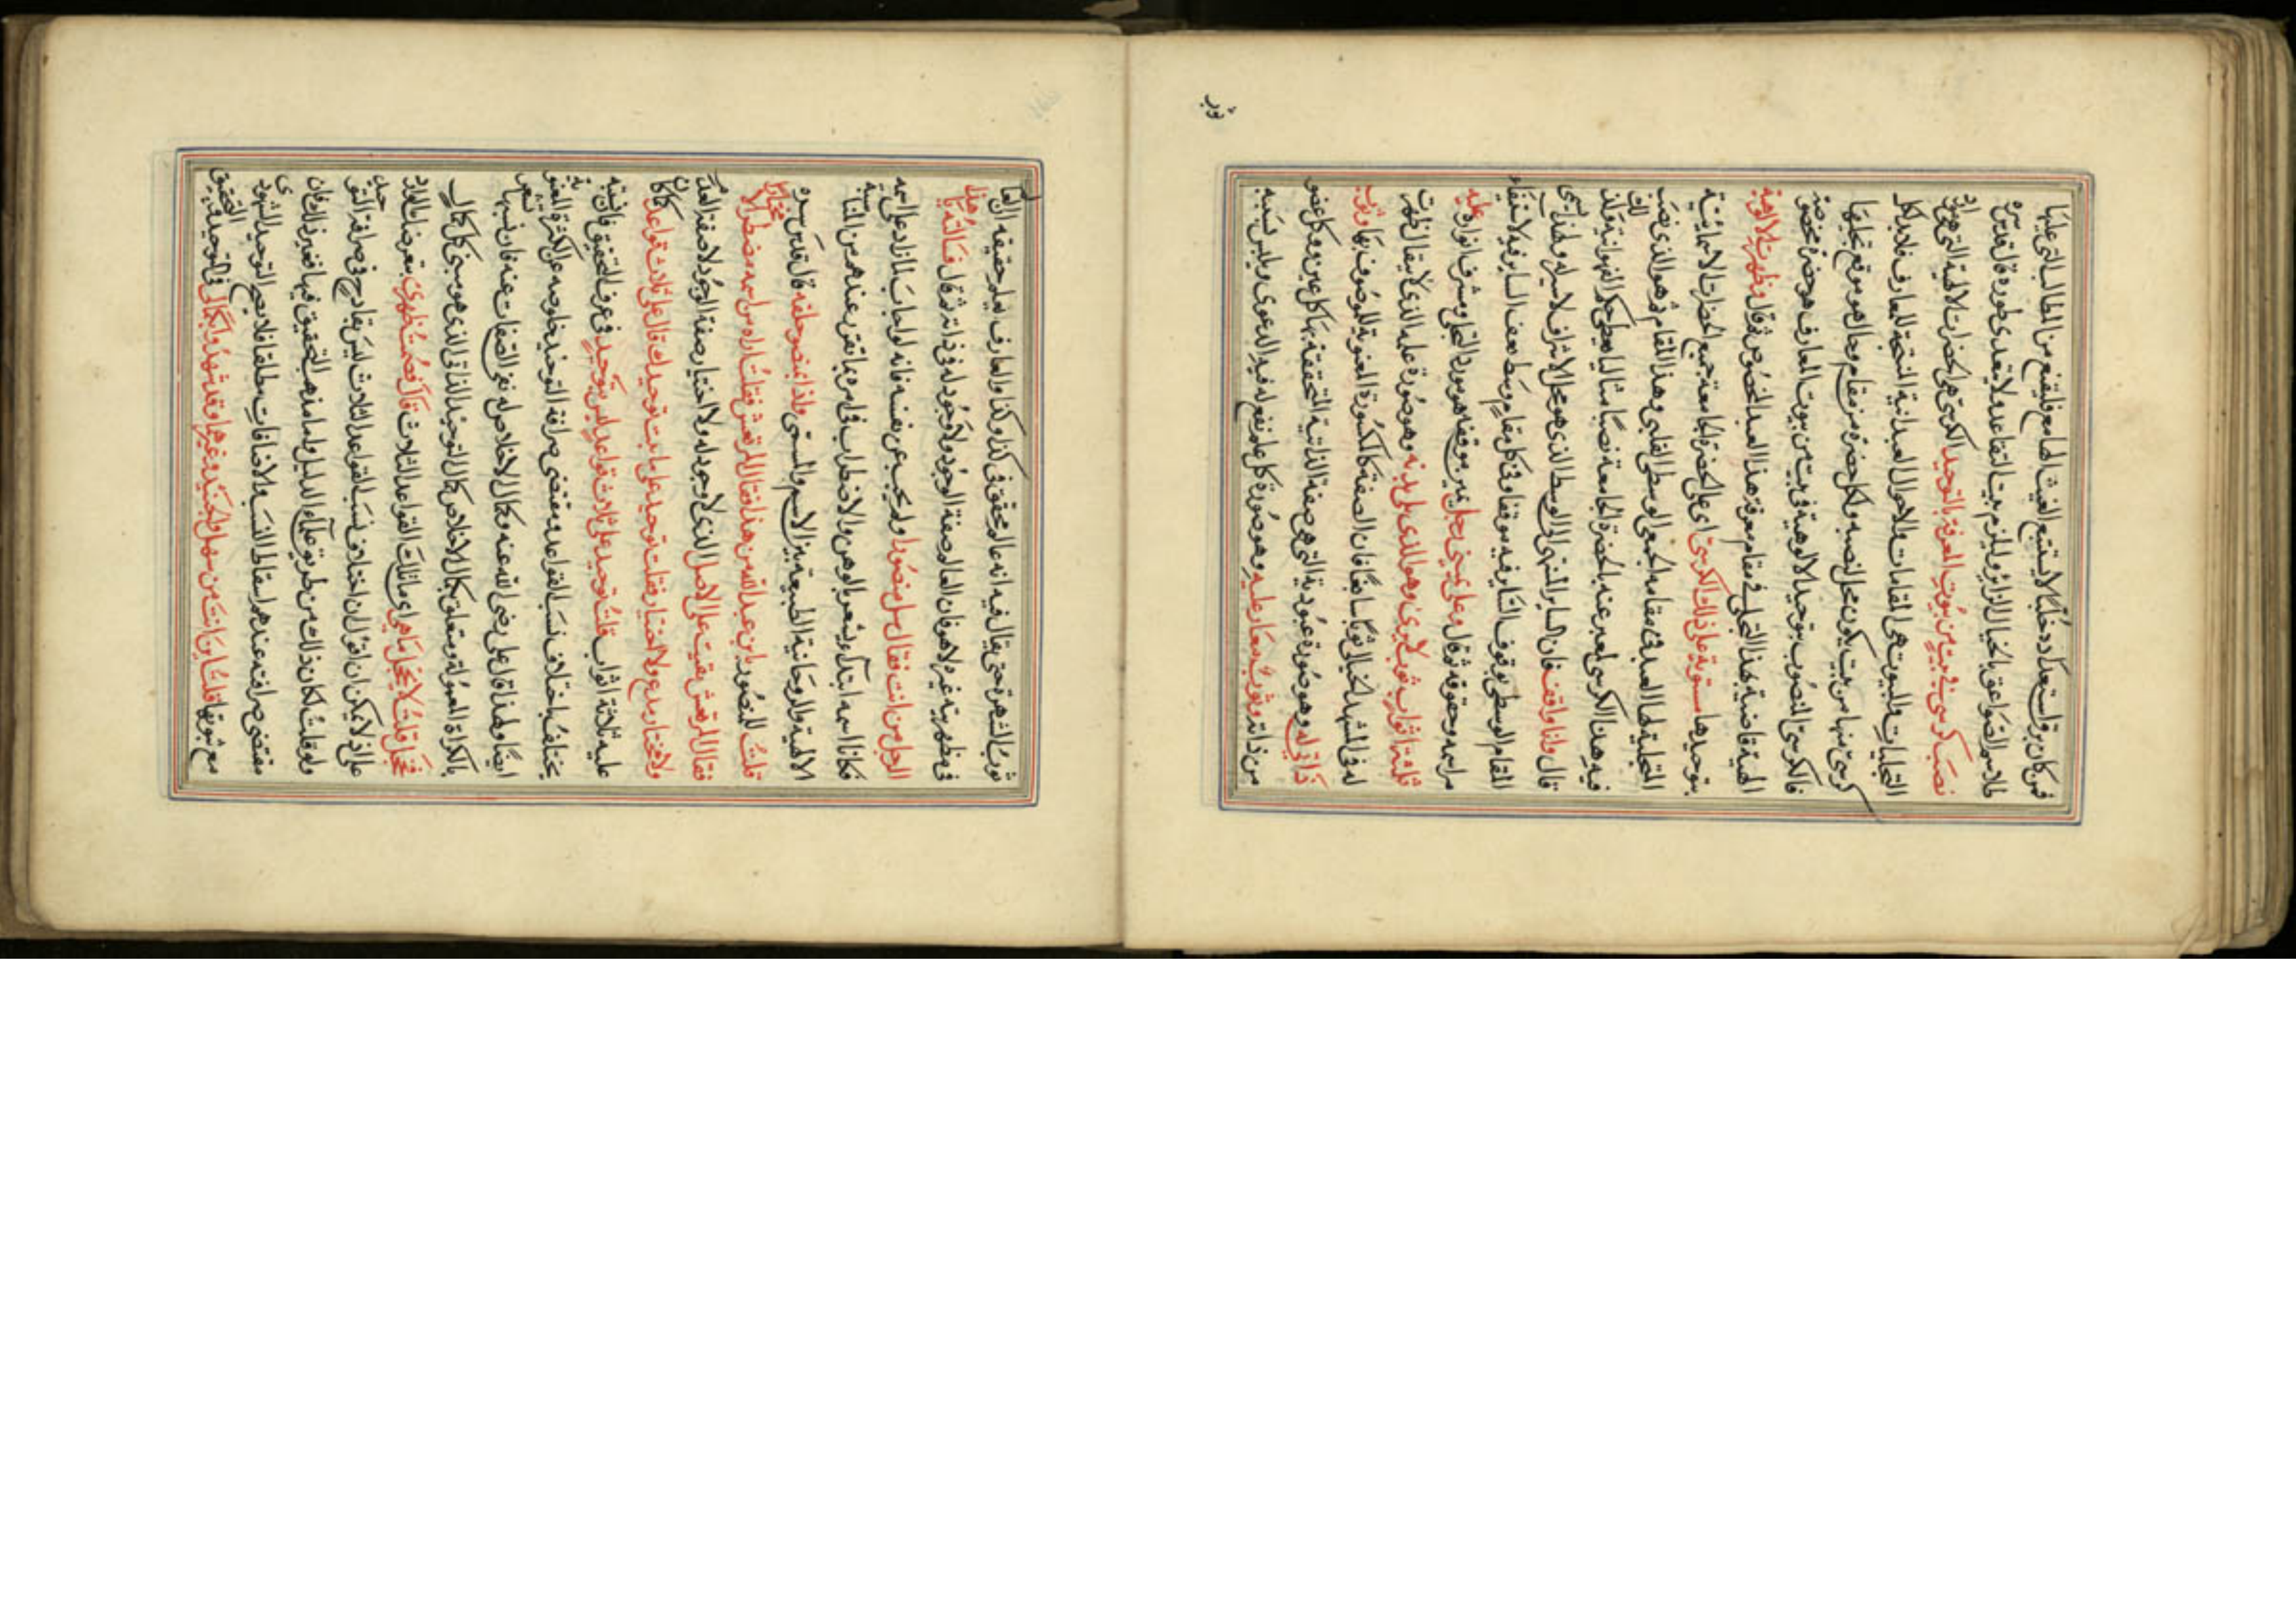 فمن كان برق استعداده خلبا لا يستتبع الغيث الهامع فليقنع من المطالب التي عليها
طلاسم الصواعق بالخيال الزائر وليلزم بيت التقاعد ولا يتعدى طوره قال قدس سره
نصب كرسي في بيت من بيوت المعرفة بالتوحيد الكرسي هي الحضرات الالهية التي هي مواد
التجليات والبيوت هي المقامات والاحوال العبدانية المنتجة للمعارف فلا بد لكل
كرسي منها من بيت يكون محل نصبه ولكل حضرة من مقام وحال هو موقع تجليها
فالكرسي المنصوب بتوحيد الالوهية في بيت من بيوت المعارف هو حضرة مخصوصة
الهية قاضية بهذا التجلي في مقام معرفة هذا العبد المخصوص ثم قال وظهرت الالوهية
بتوحيدها مستوية على ذلك الكرسي اي على الحضرة الجامعة جميع الحضرات الامتنانية
المتجلية لهذا العبد في مقامه الجمعي الوسطي القلبي وهذا المقام هو الذي نصب لك
فيه هذا الكرسي لعبر عنه بالحضرة الجامعة نصبا مثاليا يعطي حكم الفهوانية ولذا
قال وانا واقف فان السائر المنتهي الى الوسط الذي هو محل الاشراف لا سير له ولهذا يسمى
المقام الوسطي بموقف السائر فيه موقفا وفي كل مقام وسط يقف السائر فيه لاستيفاء
مراسمه وحقوقه ثم قال وعلى يميني رجل عين موقفه هو مورد التجلي ومشرق انواره عليه
ثلثة اثواب ثوب لا يرى وهو الذي يلي بدنه وهو صورة عليه الذي لا بقاء لها ظهرت
له في المشهد الخيالي ثوبا سابغا فان الصفة كالكسوة المعنوية للموصوف بها وثوب
ذاتي له وهو صورة عبودية التي هي صفته الذاتية المتحققة بها كل عين وكل عضو
من ذاته وثوب معار عليه وهو صورة كل علم نفع له فيه الدعوى ويلبس نسبه
ثوب
ثوب الشهرة حتى يقال فيه انه عالم محقق في كذا وكذا والعارف فيه حقيقه ان العالم
في مظهريته غيره لا هو فان العالم صفة الوجود ولا وجود له في ذاته ثم قال فسألته يا هذا
الرجل من انت فقال سل منصورا ولم يجب عن نفسه فانه لو اجاب لما زاد على اسمه
فكانا اسمه ابتدا ويشعر بالوهن والاضطراب في امره بما تقرر عندهم من المناسبة
الالهية والروحانية الطبيعية بين الاسم والمسمى واذا بمنصور خلفه قال قدس سره
قلت للمنصور يا ابن عبد الله من هذا فقال المرتعش فقلت اراه من اسمه مضطرا لا مختارا
فقال المرتعش بقيت على الاصل الذي لا وجود له ولا اختيار صفة الوجود لا صفة العدم
ولا مختار مدع ولا اختيار فقلت توحيدك على ما بنيت توحيدك قال على ثلاث قواعد كان
عليه ثلاثة اثواب قلت توحيد على ثلاث قواعد ليس بتوحيد في عرف التحقيق فان نسبته
تختلف باختلاف نسب القواعد ومقتضى صرافة التوحيد خلوصه عن الكثرة المعنوية
ايضا ولهذا قال علي رضي الله عنه وكمال الاخلاص له نفي الصفات عنه فان نسبتها تقضي
بالكثرة المعقولة ومتعلق بكمال الاخلاص كمال التوحيد الذاتي الذي هو منبع كل كمال
فخجل قلت لا تخجل ما هي اي ما تلك القواعد الثلاث قال قصمت ظهري بتعرضك القادح
على اذ لا يمكن ان اقول ان اختلاف نسب القواعد الثلاث ليس بقادح في صرافة التوحيد
ولو قلت لكان ذلك من طريق علماء الدليل واما مذهب التحقيق فيها فغير ذلك فان
مقتضى صرافته عندهم اسقاط النسب والاضافات مطلقا فلا يصح التوحيد الشهودي
مع ثبوتها قلت اين انت من سهل والجنيد وغيرهما وقد شهدوا بكمالي في التوحيد التحقيقي